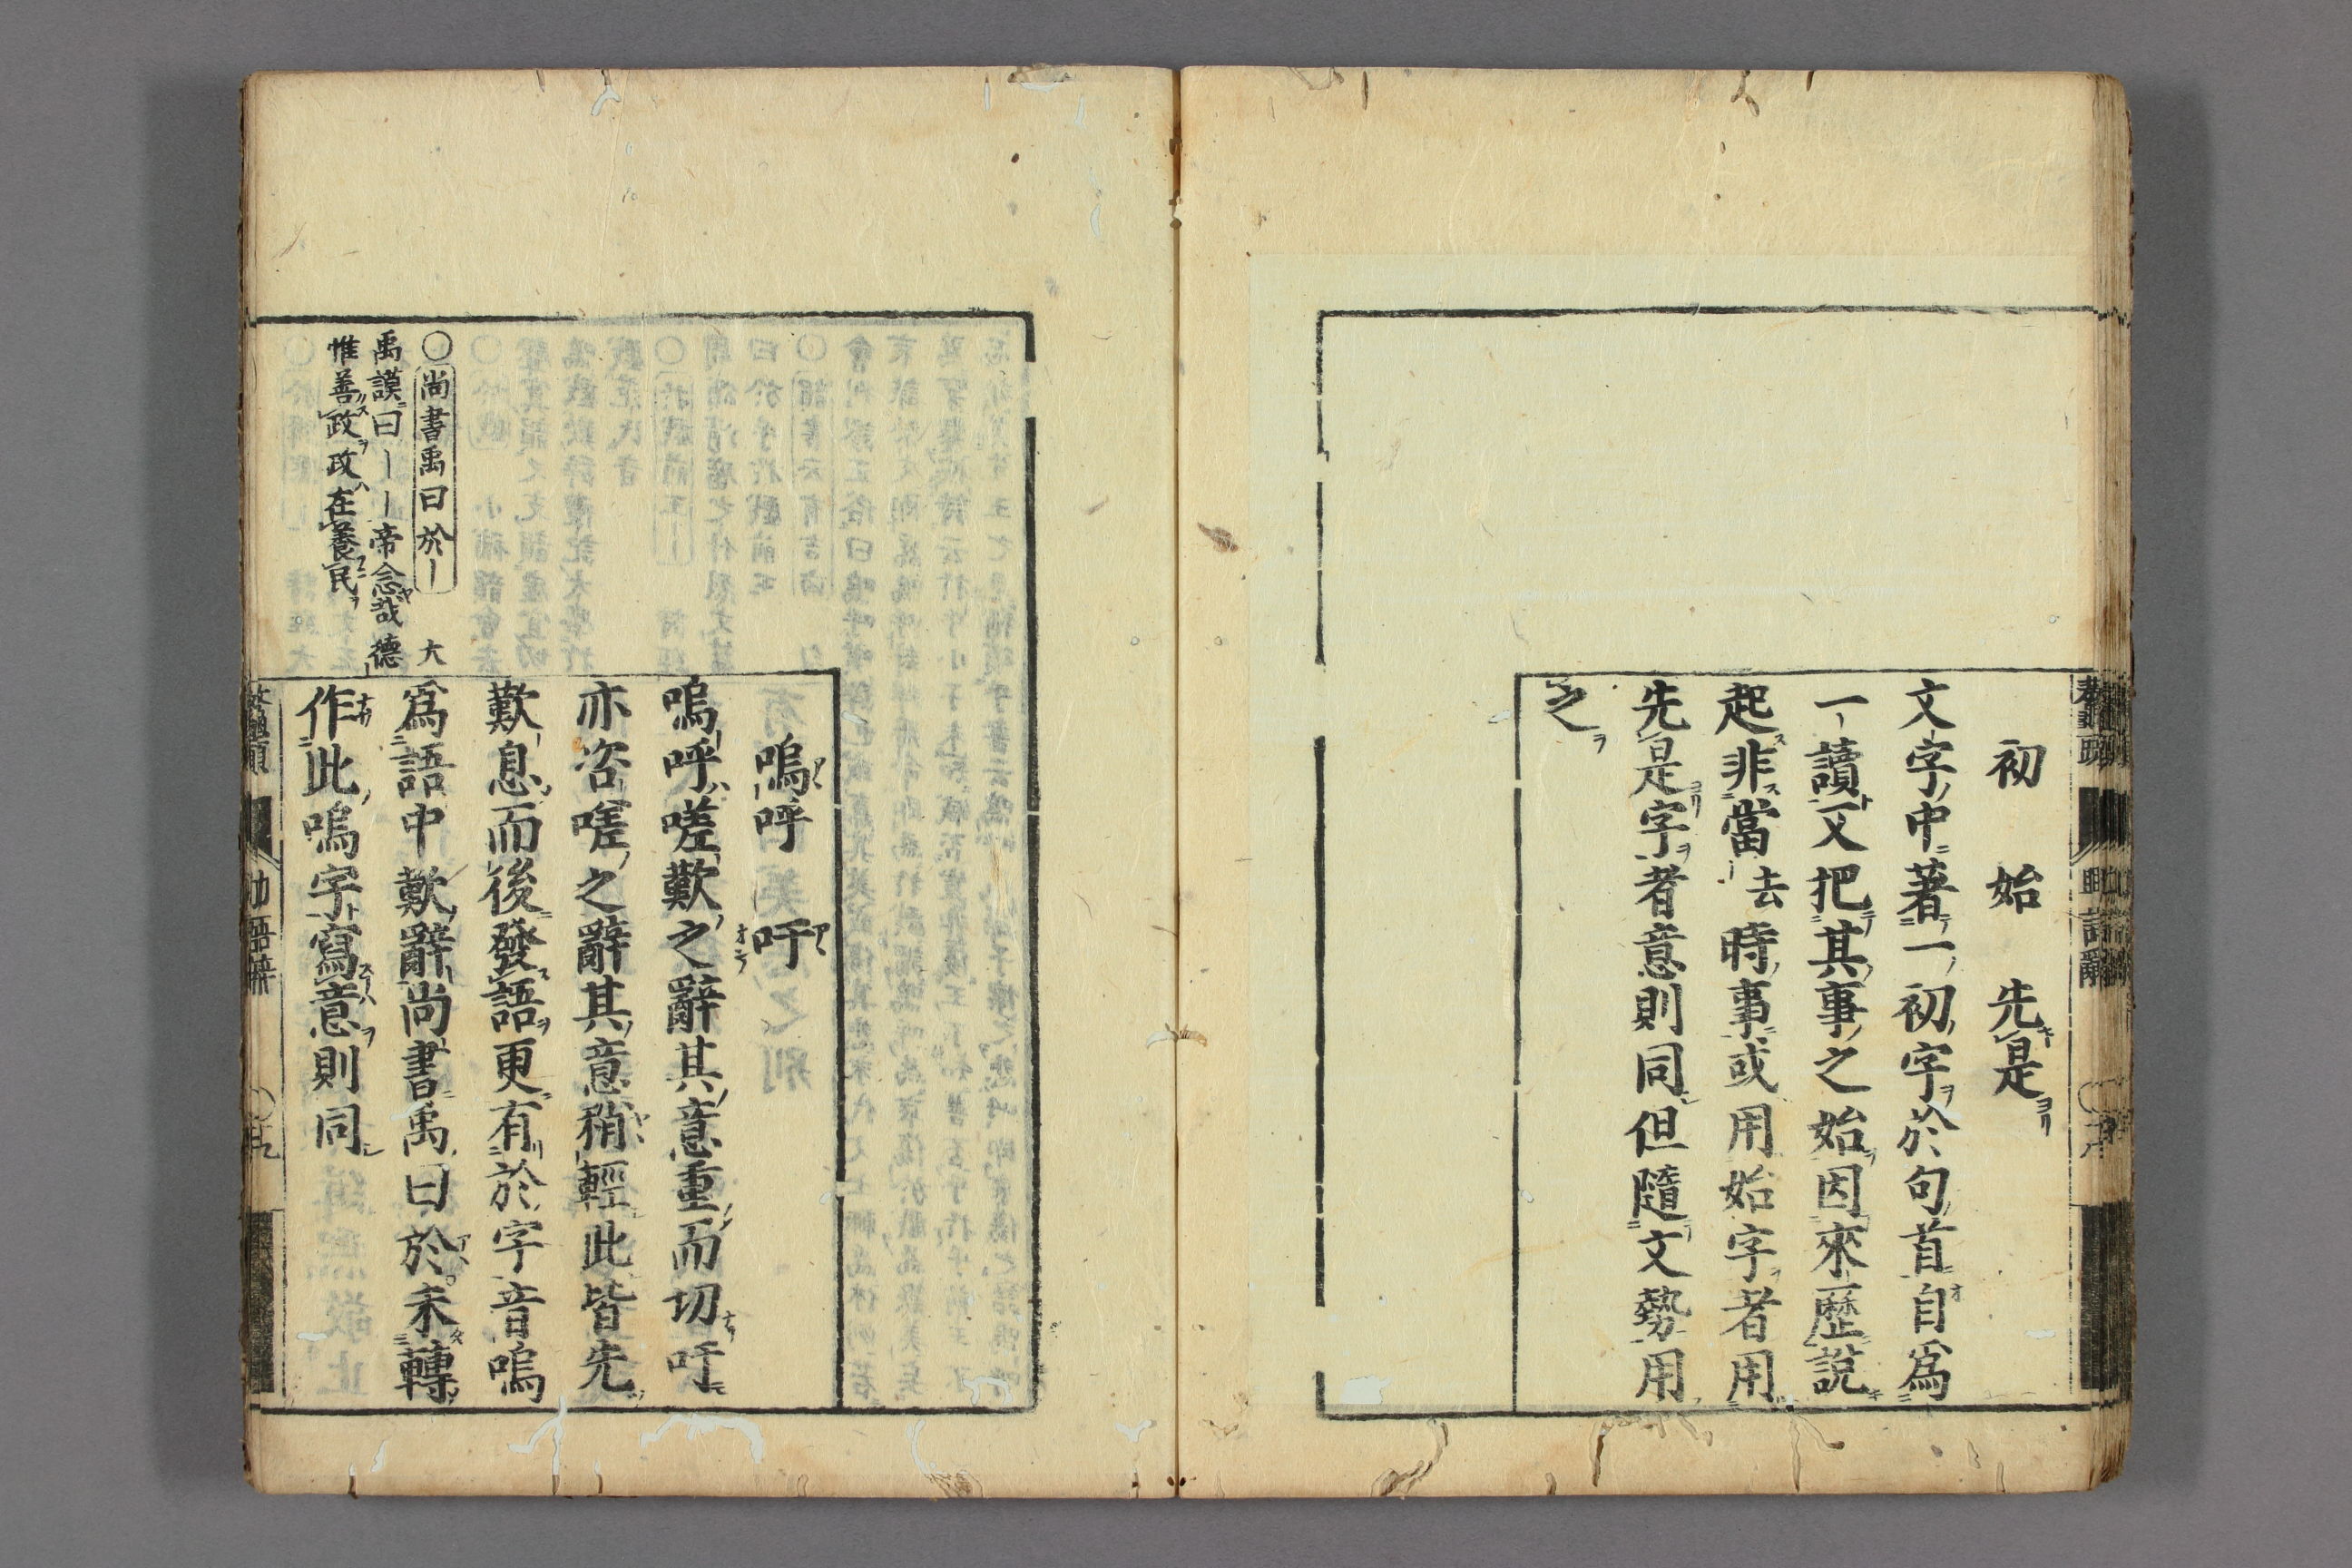 初　始　先是
文字中著一初字於句首自爲
一讀又把其事之始因來歷説
起非當去時事或用始字者用
先是字者意則同但隨文勢用
之
嗚呼　吁
嗚呼嗟歎之辭其意重而切吁
亦咨嗟之辭其意稍輕此皆先
歎息而後發語更有於字音嗚
爲語中歎辭尚書禹曰於未轉
作此嗚字寫意則同
○尚書禹曰於〡　大
禹謨曰〡〡帝念哉德
惟善政政在養民